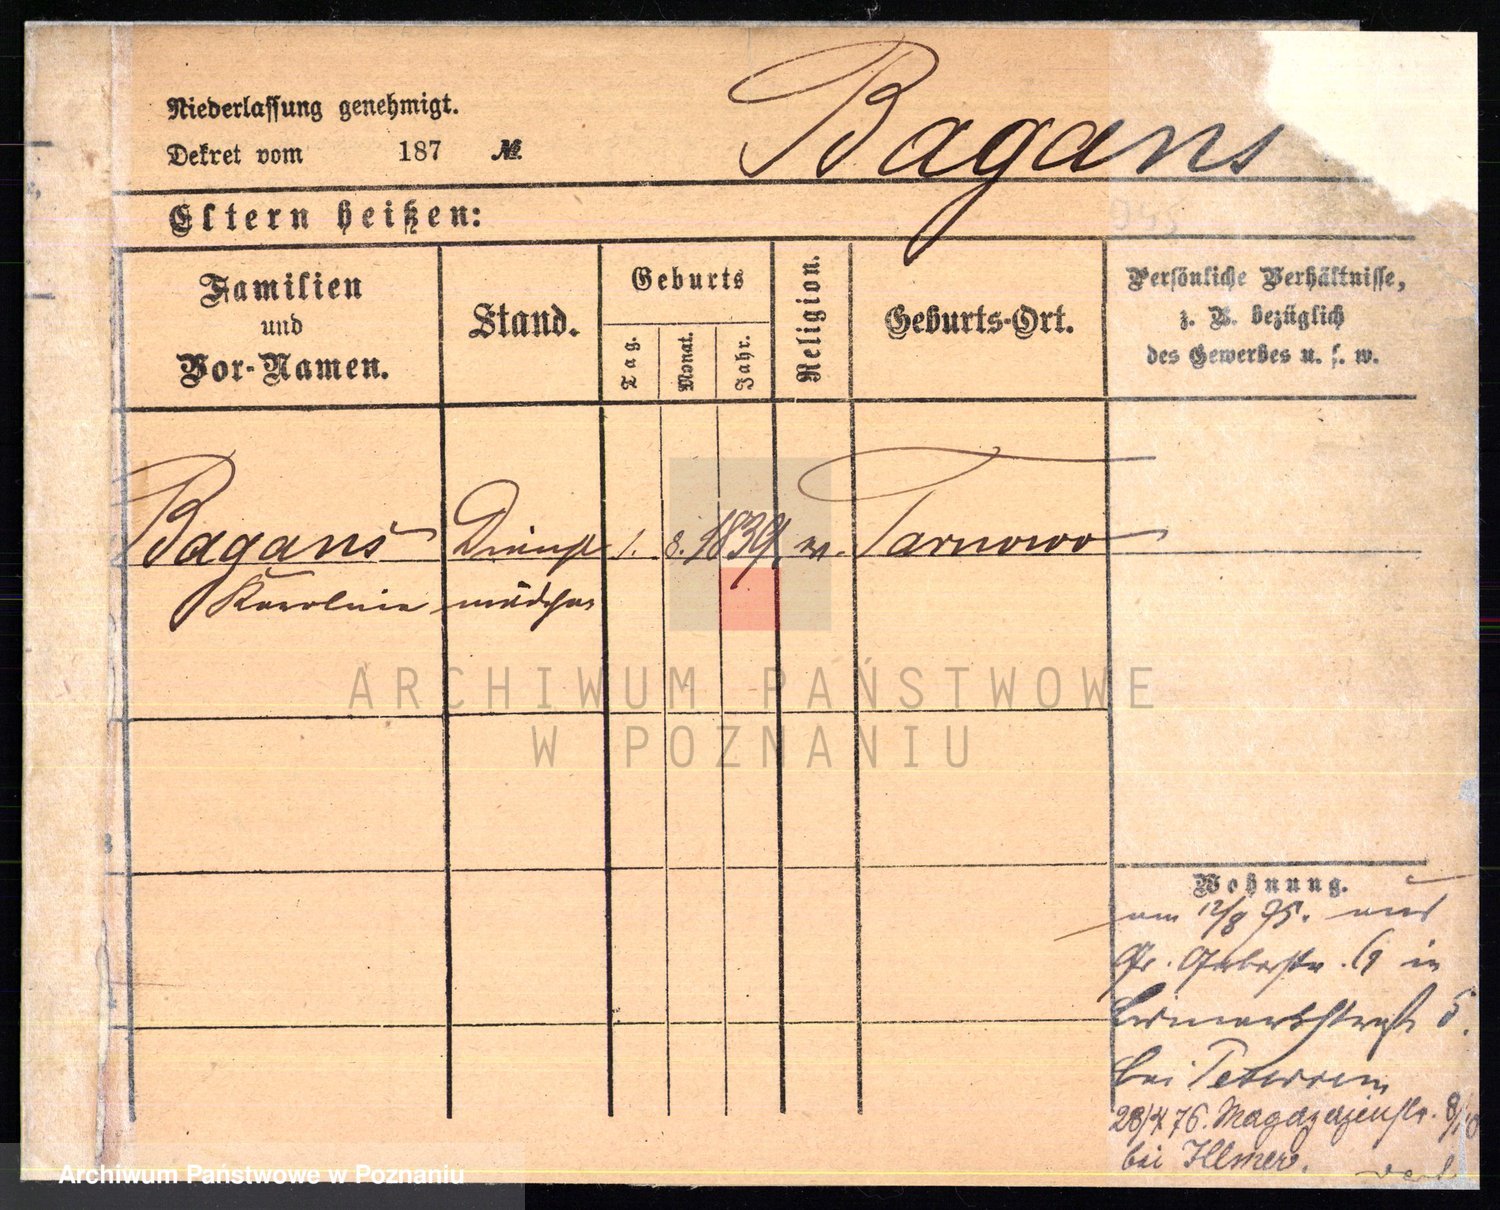 Niederlassung genehmigt.
Dekret vom 187 №
Bagans
Eltern heißen:
Familien
und
Vor-Namen.
Stand.
Geburts
Tag.
Monat.
Jahr.
Religion.
Geburts-Ort.
Persönliche Verhältnisse,
z. B. bezüglich
des Gewerbes u. s. w.
Bagans Dienst 1. 8. 1839 Tarnowo
Karoline mädchen
ARCHIWUM PAŃSTWOWE
W POZNANIU
Wohnung.
am 12/8 75. aus
Gr. Gerberstr. in
Bismarckstraße 5.
bei
28/4 76. Magazinstr.
bei Illmer.
Archiwum Państwowe w Poznaniu